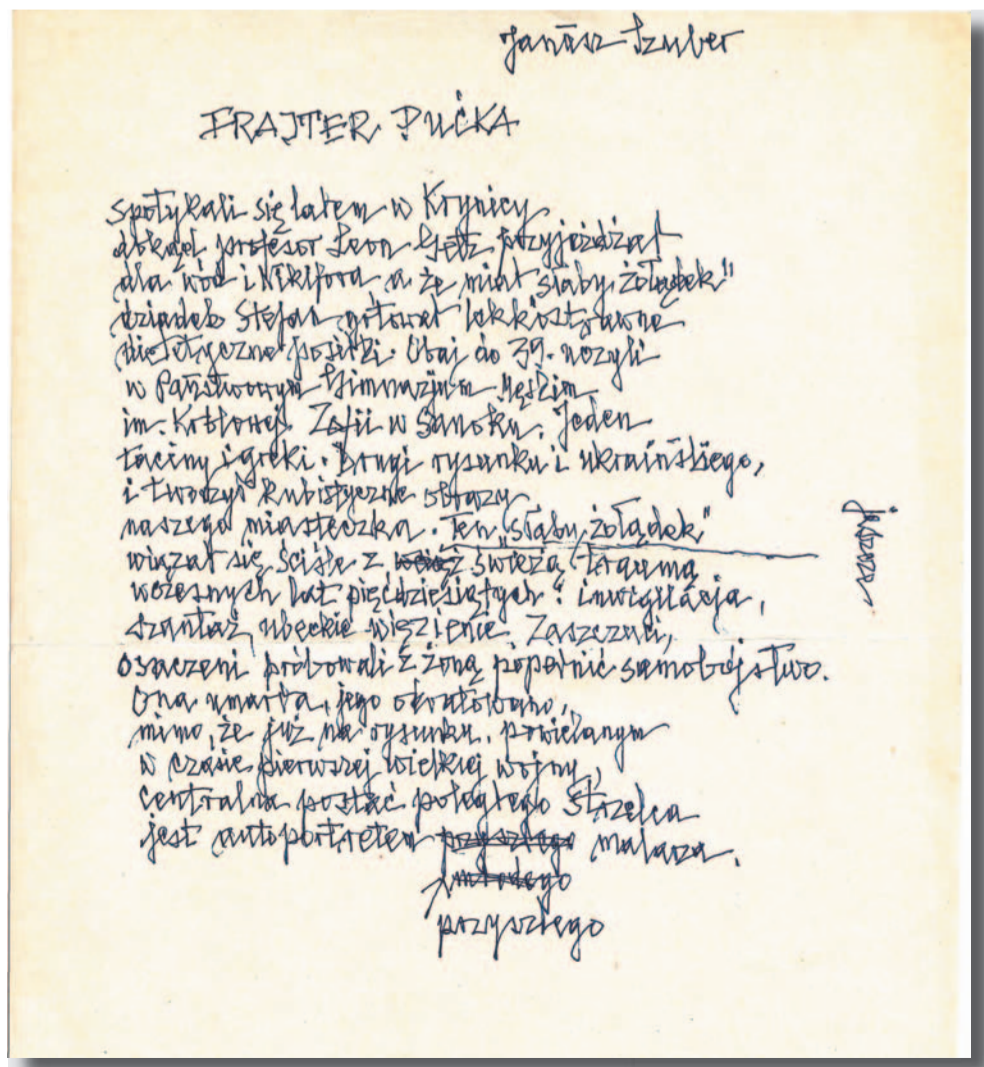 Janusz Szuber
FRAJTER PUĆKA
spotykali się latem w Krynicy
dokąd profesor Leon Getz przyjeżdżał
dla wód i Nikifora a że miał "słaby żołądek"
dziadek Stefan gotował lekkostrawne
dietetyczne posiłki. Obaj do 39. uczyli
w Państwowym Gimnazjum Męskim
im. Królowej Zofii w Sanoku. Jeden
łaciny i greki. Drugi rysunku i ukraińskiego,
i tworzył kubistyczne obrazy
naszego miasteczka. Ten "słaby żołądek"
wiązał się ściśle z wciąż świeżą traumą
wczesnych lat pięćdziesiątych: inwigilacja,
szantaż, ubeckie więzienie. Zaszczuci,
osaczeni próbowali z żoną popełnić samobójstwo.
Ona umarła, jego odratowano,
mimo, że już na rysunku, powielanym
w czasie pierwszej wielkiej wojny,
centralna postać poległego Strzelca
jest autoportretem przyszłego malarza.
młodego
przyszłego